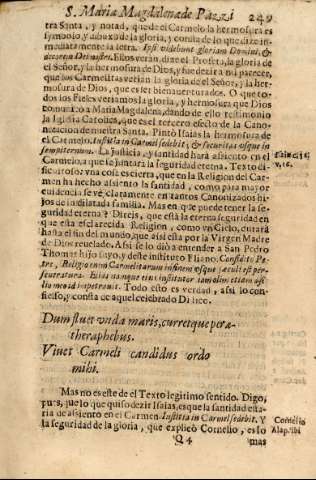 S. Maria Magdalena de Pazzi 249
tra Santa, y notad, que de el Carmelo la hermosura es
symbolo y dibuxo de la gloria, y consta de lo que dize in-
mediatamente la letra. Ipsi videbunt gloriam Domini, &
decorem Dei nostri. Ellos verán, dize el Profeta, la gloria de
el Señor, y la hermosura de Dios, y fue dezir a mi parecer,
que los Carmelitas verian la gloria de el Señor, y la her-
mosura de Dios, que es ser bienaventurados. O que to-
dos los Fieles veriamos la gloria, y hermosura que Dios
comunicó a Maria Magdalena, dando de esso testimonio
la Iglesia Catolica, que es el tercero efecto de la Cano-
nicacion de nuestra Santa. Pintò Isaias la hermosura de
el Carmelo. Iustitia in Carmel sedebit, & securitas vsque in
sempiternum. La Justicia, y santidad harà assiento en el
Carmelo, a que se juntarà la seguridad eterna. Texto di-
ficultoso: vna cosa es cierta, que en la Religion del Car-
men ha hecho assiento la santidad, como para mayor
evidencia se vè claramente en tantos Canonizados hi-
jos de su dilatada familia. Mas en què puede tener la se-
guridad eterna? Direis, que està la eterna seguridad en
que esta esclarecida Religion, como vn Cielo, durarà
hasta el fin del mundo, que assi està por la Virgen Madre
de Dios revelado. Assi se lo diò a entender a San Pedro
Thomas hijo suyo, y deste instituto Eliano. Confide Pe-
tre, Religio enim Carmelitarum in finem vsque sæculi est per-
severatura. Elias namque eius institutor iam olim etiam à fi-
lio meo id impetravit. Todo esto es verdad, assi lo con-
fiesso, y consta de aquel celebrado Distico.
Dum fluet vnda maris, curretque per æ-
thera phebus.
Vivet Carmeli candidus ordo
mihi.
Mas no es este de el Texto legitimo sentido. Digo,
pues, que lo que quiso dezir Isaias, es que la santidad esta-
ria de assiento en el Carmen. Iustitia in Carmel sedebit. Y
la seguridad de la gloria, que explicò Cornelio, es lo
Q4 mas
Isaiæ
Cornelio
Alap. ibi